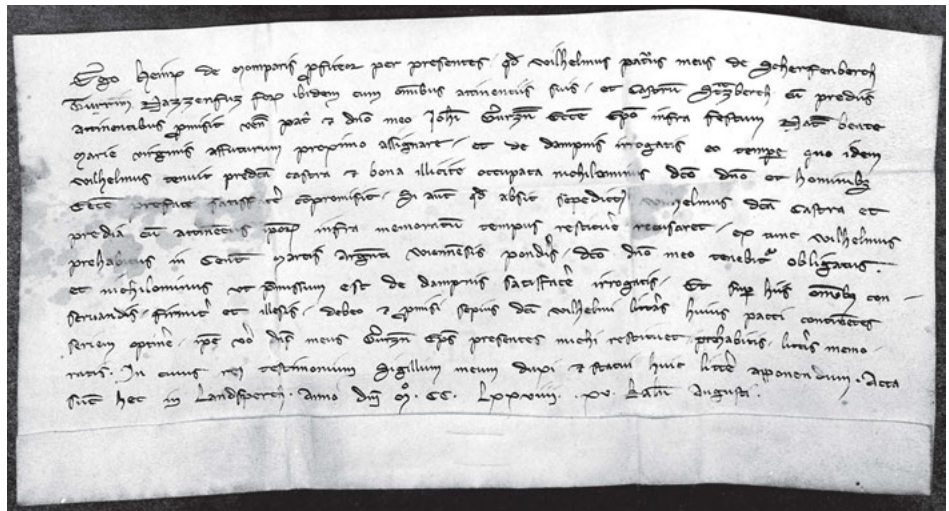 Ego heinr̄ de Momparis ꝓfiteor per presentes · qd̄ Wilhelmus patꝰus meus de Scherfenberch
Turrim Nazzenfuz forū ibidem cum om̄ibus attinenciis suis · et Castrum Ch cū prediis
attinentibus ꝓmisit ven̄ pat̄ ⁊ dn̄o meo Joh̄i Gurzn̄ Ecc̄e Ep̄o infra festum Nat̄ beate
Marie virginis affuturum proximo assignare · et de dampnis irrogatis eo tempe quo idem
Wilhelmus tenuit predc̄a castra ⁊ bona illicite occupata nichilominus dc̄o dn̄o et hominibꝫ
Ecc̄e prefate satisfac̄e compromisit · Si aut̄ qd̄ absit sepedictꝰ Wilhelmus dc̄a Castra et
predia cū attinenciis ip̄oꝝ infra memoratū tempus restitue recusaret · ex tunc Wilhelmus
prehabitus in Cent̄ Marcis argenti viennēsis pondis · dc̄o dn̄o meo tenebit̄ obligatus ·
et nichilominus ut p̄missum est de dampnis satisfac̄e irrogatis · Et sup hiis om̄ibꝫ con
servandis · firmit̄ et illesis · debeo ⁊ ꝓmisi sepius dc̄i Wilhelmi litt̄as huius pacti continētes
seriem optine · ip̄e v̄o dn̄s meus Gurzn̄ Ep̄s presentes michi restituet prehabitis · litt̄is memo
ratis · In cuius rei testimonium Sigillum meum duxi ⁊ statui huic litt̄e apponendum · Acta
sunt hec in Landsperch · Anno dn̄i · M̊ · CC · Lxxviii · xv · kal̄n augusti ·